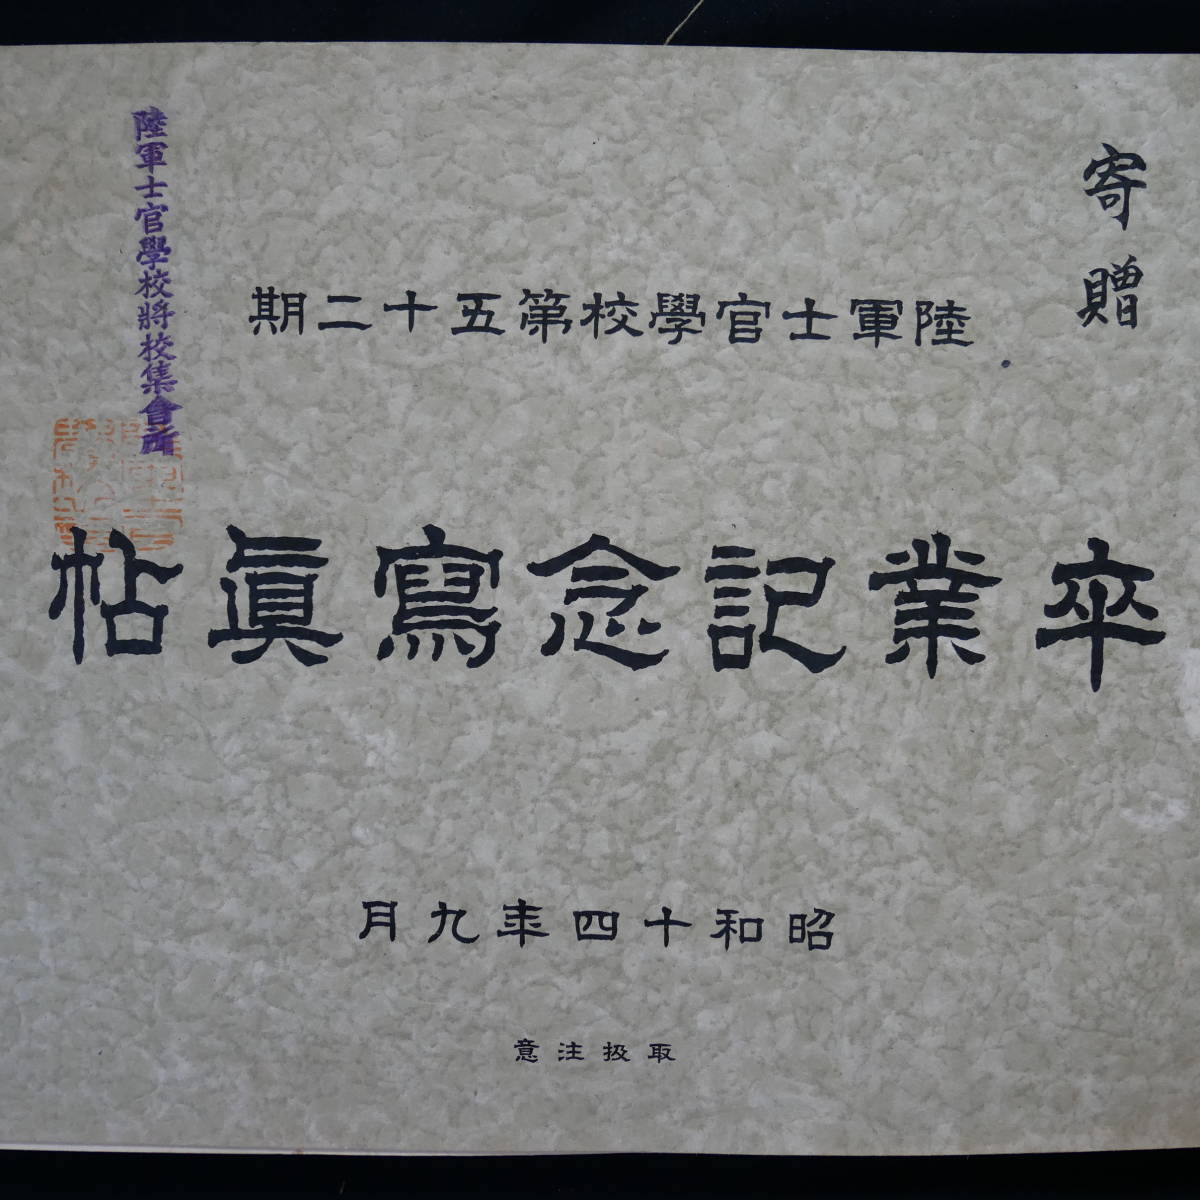 寄贈
陸軍士官學校第五十二期
卒業記念寫眞帖
昭和十四年九月
取扱注意
陸軍士官學校將校集會所